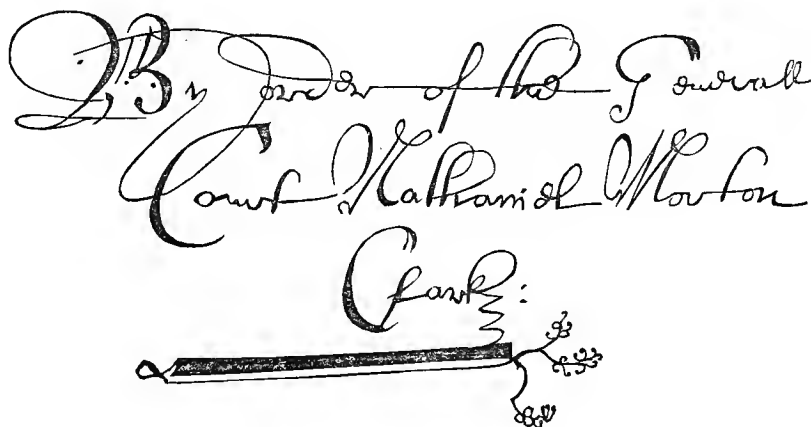 By order of the Generall
Court Nathaniel Morton
Clark: